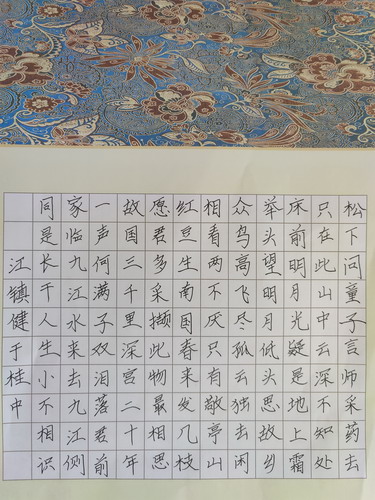 松下问童子言师采药去
只在此山中云深不知处
床前明月光疑是地上霜
举头望明月低头思故乡
众鸟高飞尽孤云独去闲
相看两不厌只有敬亭山
红豆生南国春来发几枝
愿君多采撷此物最相思
故国三千里深宫二十年
一声何满子双泪落君前
家临九江水来去九江侧
同是长干人生小不相识
江镇健于桂中